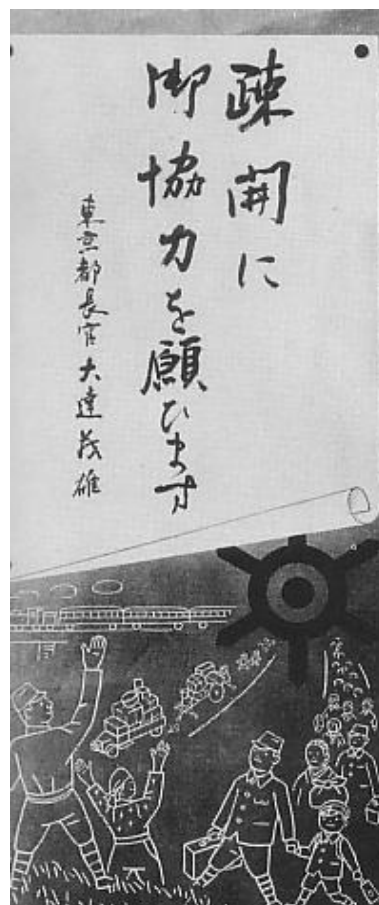 疎開に
御協力を願ひます
東京都長官大達茂雄